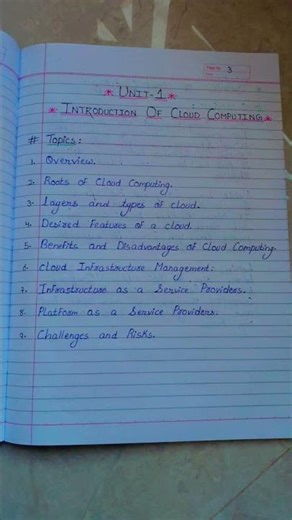 3
* UNIT-1 *
* INTRODUCTION OF CLOUD COMPUTING *
# Topics:
1. Overview.
2. Roots of Cloud Computing.
3. Layers and types of cloud.
4. Desired Features of a cloud.
5. Benefits and Disadvantages of Cloud Computing.
6. Cloud Infrastructure Management.
7. Infrastructure as a Service Providers.
8. Platform as a Service Providers.
9. Challenges and Risks.